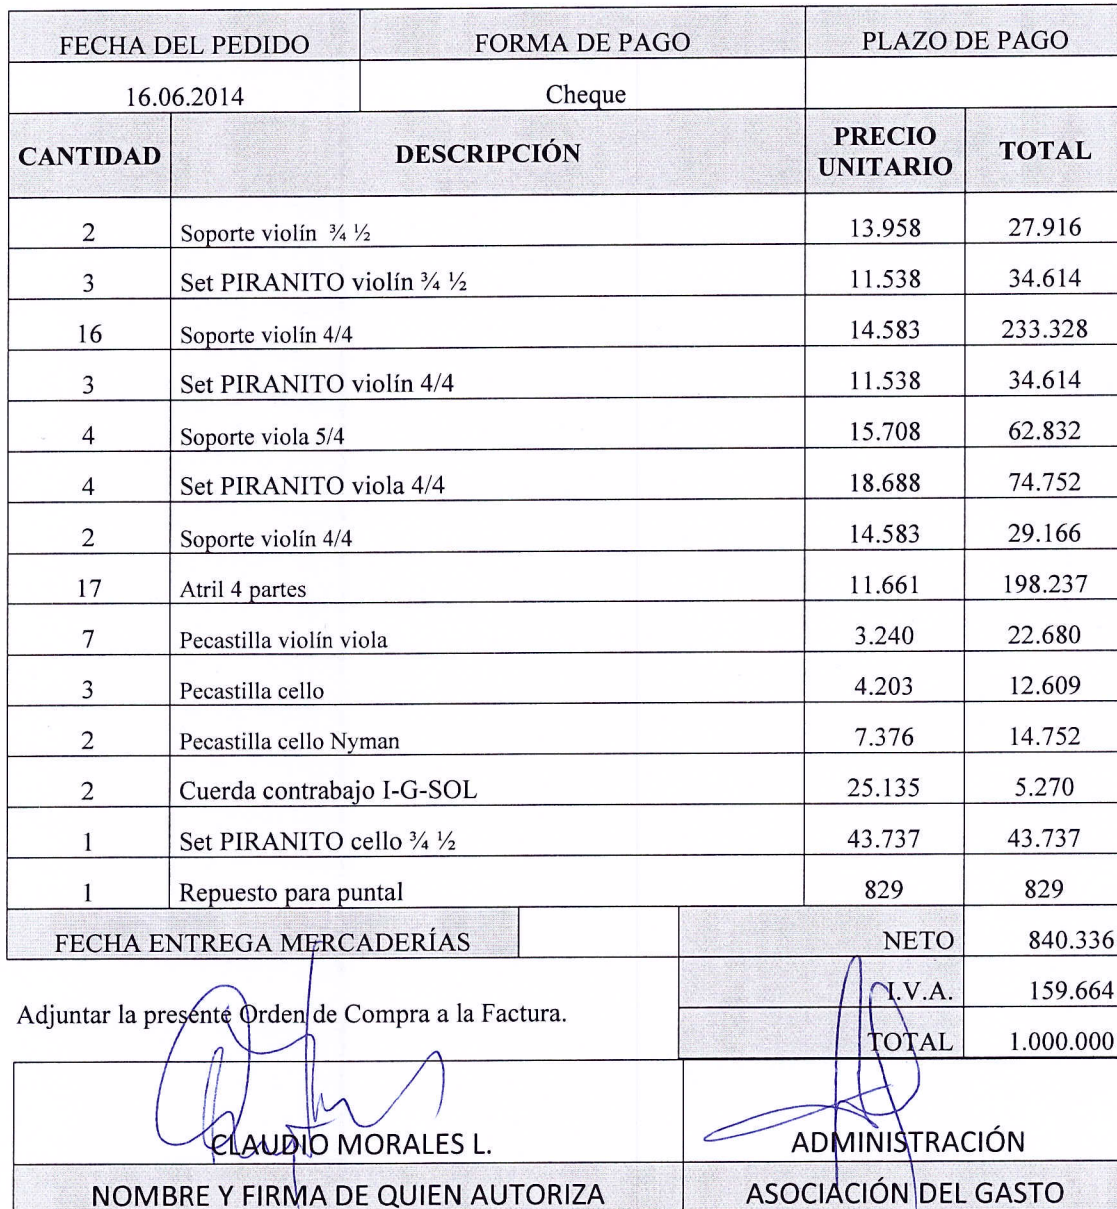 FECHA DEL PEDIDO FORMA DE PAGO PLAZO DE PAGO
16.06.2014 Cheque
CANTIDAD DESCRIPCIÓN PRECIO UNITARIO TOTAL
2 Soporte violín ¾ ½ 13.958 27.916
3 Set PIRANITO violín ¾ ½ 11.538 34.614
16 Soporte violín 4/4 14.583 233.328
3 Set PIRANITO violín 4/4 11.538 34.614
4 Soporte viola 5/4 15.708 62.832
4 Set PIRANITO viola 4/4 18.688 74.752
2 Soporte violín 4/4 14.583 29.166
17 Atril 4 partes 11.661 198.237
7 Pecastilla violín viola 3.240 22.680
3 Pecastilla cello 4.203 12.609
2 Pecastilla cello Nyman 7.376 14.752
2 Cuerda contrabajo I-G-SOL 25.135 5.270
1 Set PIRANITO cello ¾ ½ 43.737 43.737
1 Repuesto para puntal 829 829
FECHA ENTREGA MERCADERÍAS NETO 840.336
I.V.A. 159.664
Adjuntar la presente Orden de Compra a la Factura.
TOTAL 1.000.000
CLAUDIO MORALES L. ADMINISTRACIÓN
NOMBRE Y FIRMA DE QUIEN AUTORIZA ASOCIACIÓN DEL GASTO